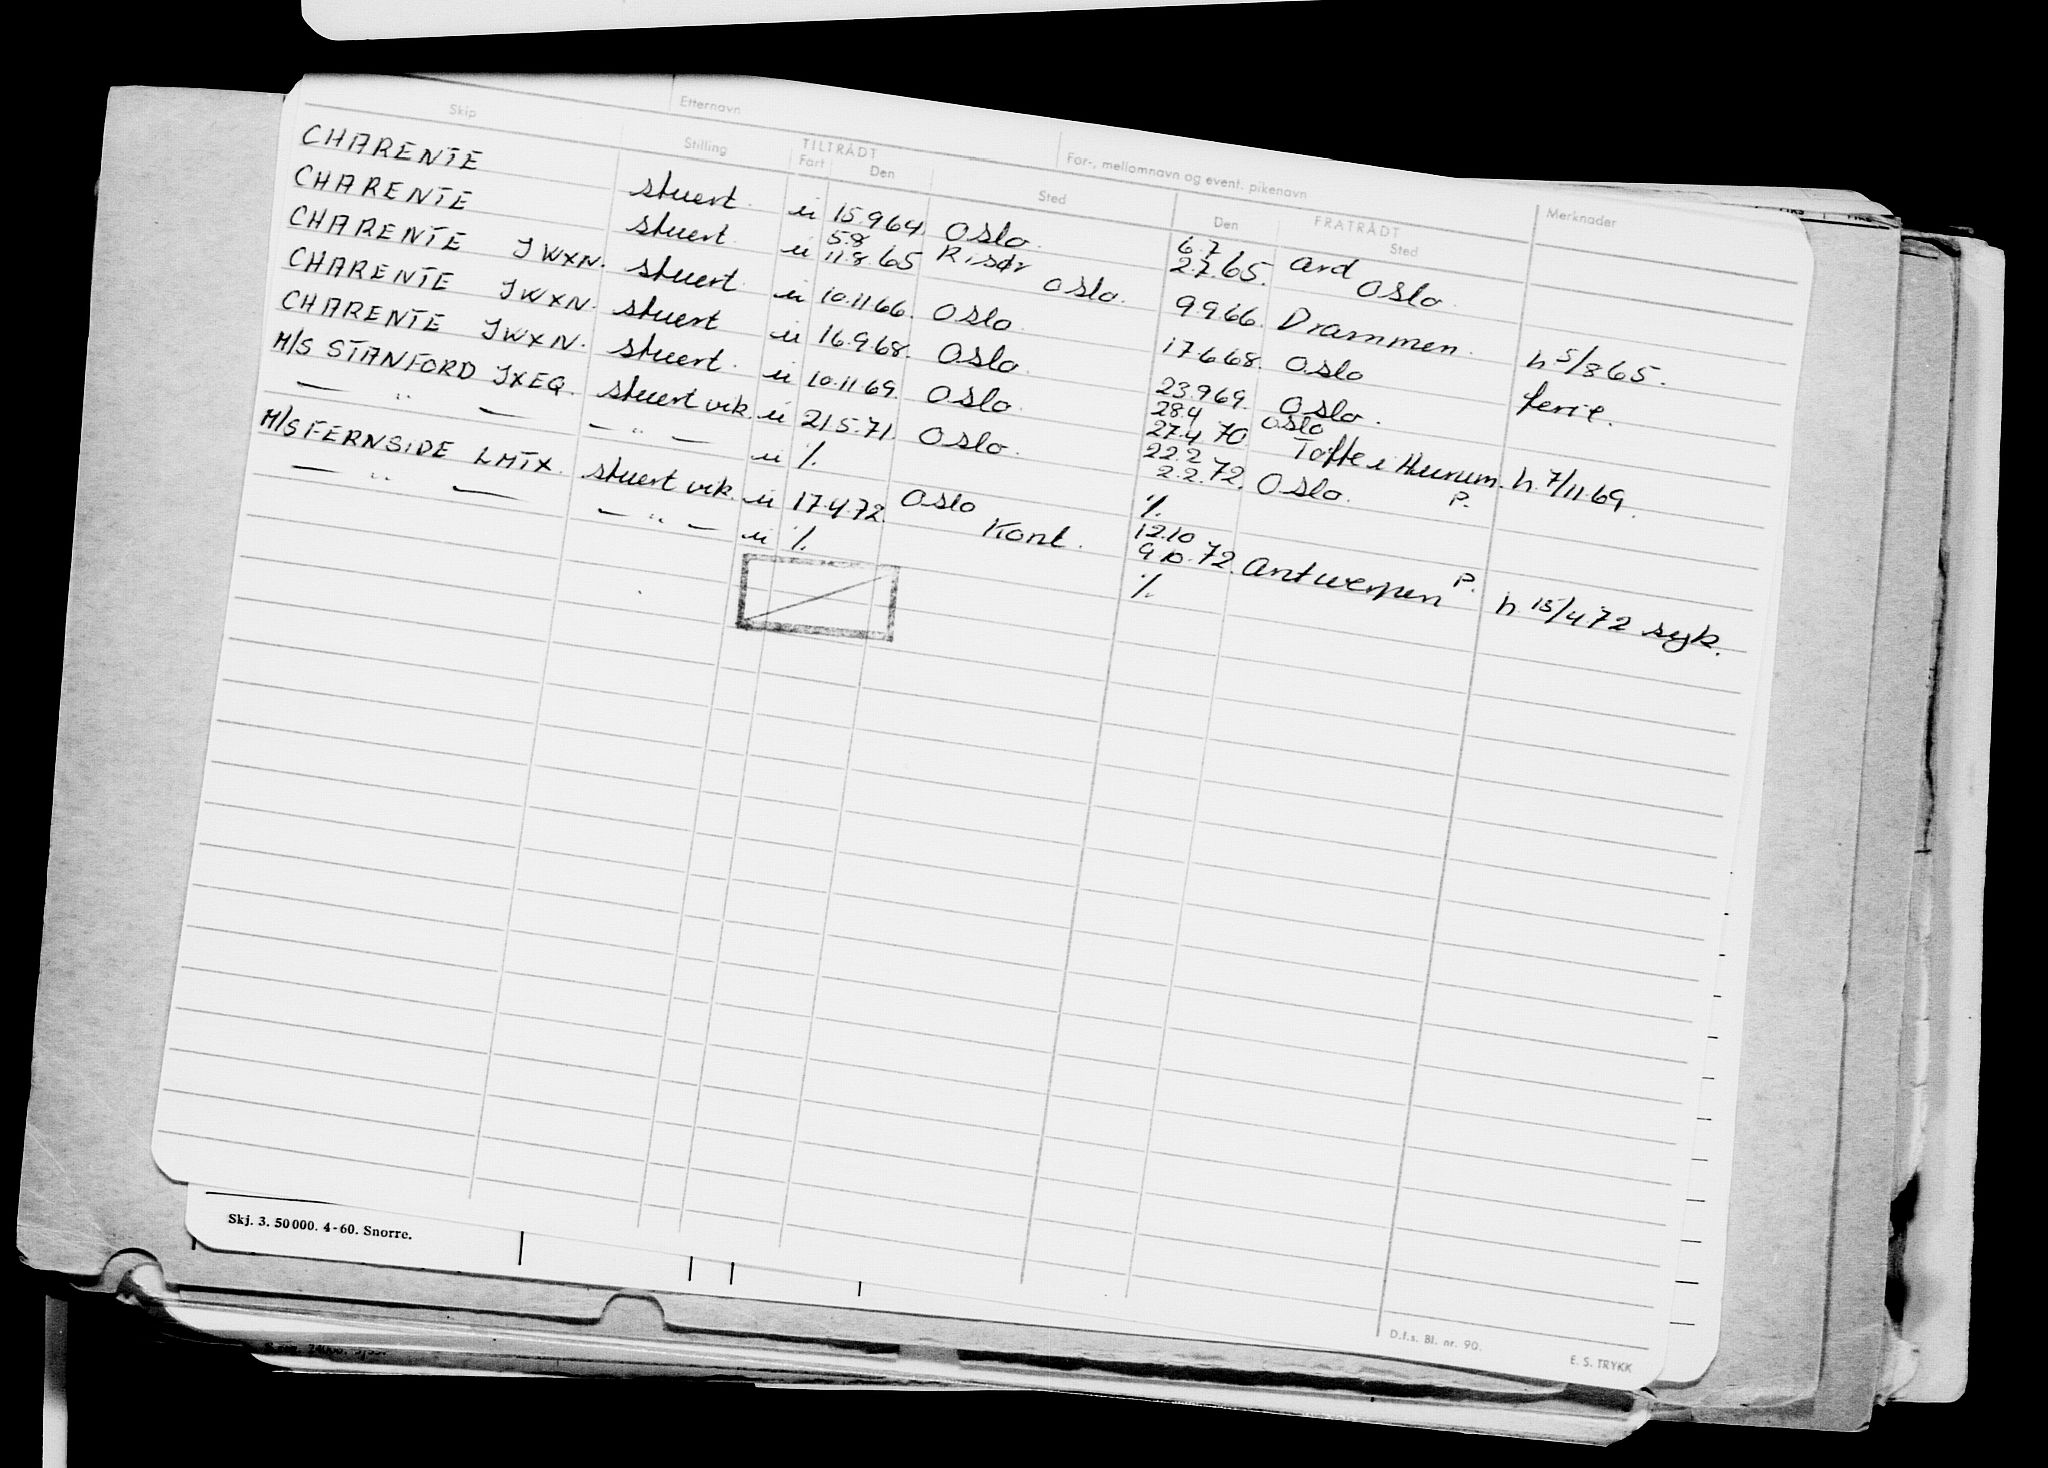 Etternavn
For-, mellomnavn og event. pikenavn
Skip Stilling TILTRÅDT Fart Den Sted FRATRÅDT Den Sted Merknader
CHARENTE stuert. u 15.9.64. Oslo. 6.7 2.7.65. Ard Oslo.
CHARENTE stuert. u 5.8 11.8.65 Risør Oslo. 9.9.66. Drammen.
CHARENTE JWXN. stuert. u 10.11.66. Oslo. 17.6.68. Oslo h 5/8 65.
CHARENTE JWXN. stuert u 16.9.68. Oslo. 23.9.69. Oslo. ferie.
CHARENTE JWXN. stuert. u 10.11.69. Oslo. 28.4 27.4 70 Oslo Tofte i Hurum. h. 7/11.69.
M/S STANFORD JXEQ. stuert vik. u 21.5.71. Oslo. 22.2 2.2.72. Oslo. P.
— " — — " — u %. %.
M/S FERNSIDE LMTX. stuert vik. u 17.4.72. Oslo Kont. 12.10 9.10.72. Antwerpen P. h 15/4 72 syk.
— " — — " — u %. %.
D.f.s. Bl. nr. 90.
E. S. TRYKK
Skj. 3. 50 000. 4-60. Snorre.